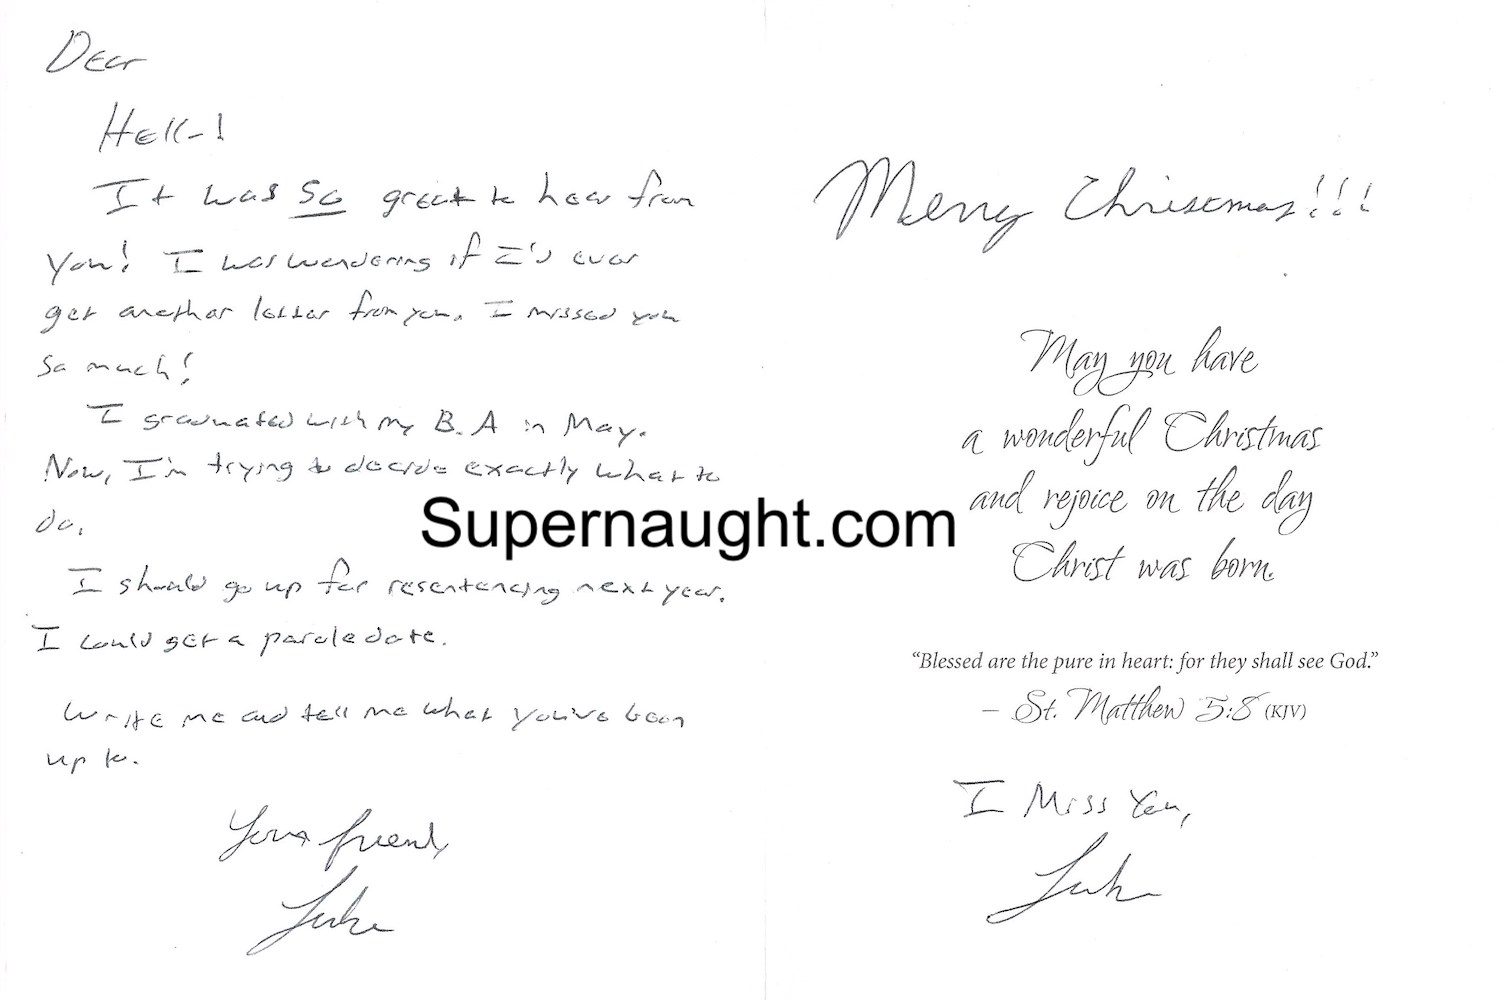 Dear
Hello!
It was so great to hear from
you! I was wondering if I'd ever
get another letter from you. I missed you
so much!
I graduated with my B.A in May.
Now, I'm trying to decide exactly what to
do.
I should go up for resentencing next year.
I could get a parole date.
Write me and tell me what you've been
up to.
Your friend,
Luke
Supernaught.com
Merry Christmas!!!
May you have
a wonderful Christmas
and rejoice on the day
Christ was born.
“Blessed are the pure in heart: for they shall see God.”
– St. Matthew 5:8 (KJV)
I Miss You,
Luke